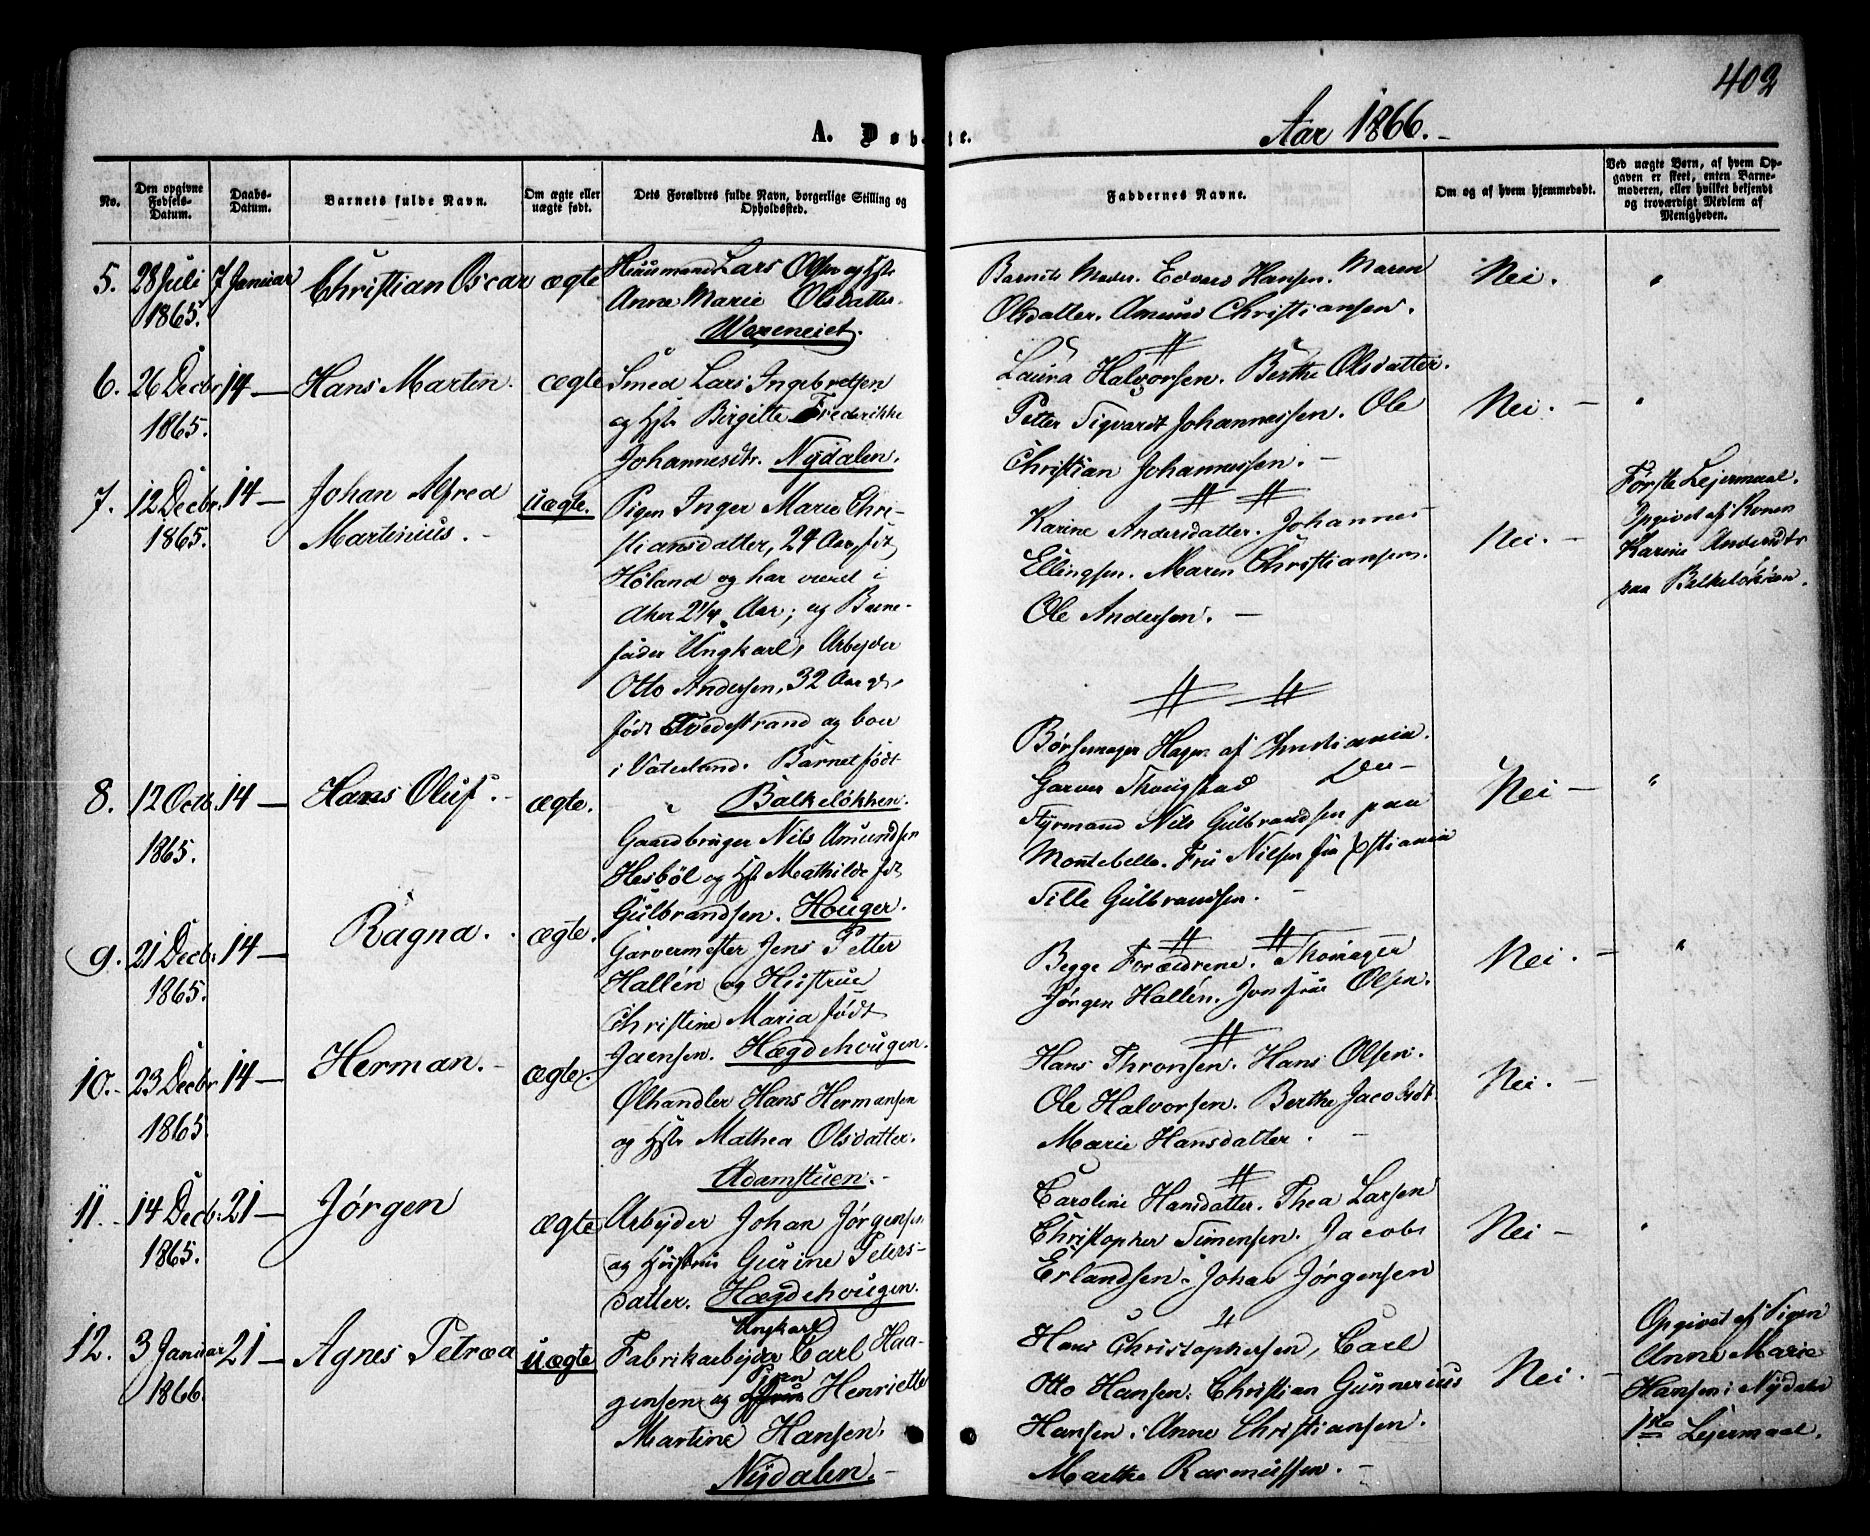 402
A. Døbte.
Aar 1866.
No.
Den opgivne Fødsels-Datum.
Daabs-Datum.
Barnets fulde Navn.
Om ægte eller uægte født.
Dets Forældres fulde Navn, borgerlige Stilling og Opholdssted.
Faddernes Navne.
Om og af hvem hjemmedøbt.
Ved uægte Børn, af hvem Opgaven er skeet, enten Barnemoderen, eller hvilket bekjendt og troværdigt Medlem af Menigheden.
5. 28 Juli 1865. 7 Januar Christian Oscar ægte
Huusmand Lars Olsen og Hst.
Anne Marie Olsdatter.
Barnets Moder. Edvard Hansen. Maren
Olsdatter. Amund Christiansen.
Nei. "
6. 26 Decbr 1865. 14 — Hans Martin. ægte
Smed Lars Ingebretsen
og Hst. Birgitte Frederikke
Johannesdtr. Nydalen.
Laura Halvorsen. Berthe Olsdatter.
Petter Sigvardt Johannessen. Ole
Christian Johannessen. —
Nei. — "
7. 12 Decbr. 1865. 14 — Johan Alfred
Martinius. — uægte.
Pigen Inger Marie Chri-
stiansdatter, 24 Aar, født
Høland og har været i
Aker 2 1/4 Aar; og Barne-
fader Ungkarl, Arbeider
Otto Andersen, 32 Aar gl.
født Tvedestrand og boer
i Vaterland. Barnet født
Balkeløkken.
Karine Andersdatter. Johannes
Ellingsen. Maren Christiansen.
Ole Andersen. —
Nei. —
Første Leiermaal.
Opgivet af Konen
Karine Andersdtr
paa Balkeløkken.
8. 12 Octb. 1865. 14 — Hans Oluf. — ægte.
Gaardbruger Nils Amundsen
Hesbøl og Hst. Mathilde født
Gulbrandsen. Houger.
Børsemager Hagen af Christiania.
Garver Thougstad Do —
Styrmand Nils Gulbrandsen paa
Montebello. Fru Nilsen fra Xstiania
Tille Gulbrandsen. —
Nei — "
9. 21 Decbr. 1865. 14 — Ragna. ægte.
Garvermester Jens Petter
Hallén og Hustrue
Christine Maria født
Jaensen. Hægdehougen.
Begge Forældrene.
Jørgen Hallén. Jomfrue Olsen.
Nei. — "
10. — 23 Decbr 1865. 14 — Herman. — ægte.
Ølhandler Hans Hermansen
og Hst. Mathea Olsdatter.
Adamstuen. —
Hans Thronsen. Hans Olsen.
Ole Halvorsen. Berthe Jacobsdt.
Marie Hansdatter. —
Nei. —
11. — 14 Decbr. 1865. 21 — Jørgen ægte
Arbeider Johan Jørgensen
og Hustru Gurine Peters-
datter. Hægdehougen.
Caroline Hansdatter. Thea Larsen
Christopher Simensen. Jacob
Erlandsen. Johan Jørgensen
Nei — "
12. 3 Januar 1866. 21 — Agnes Petrea uægte
Ungkarl
Fabrikarbeider Carl Haa-
gensen og Pigen Henriette
Martine Hansen.
Nydalen. —
Hans Christophersen, Carl
Otto Hansen. Christian Gunnerius
Hansen. Anne Christiansen
Marthe Rasmussen. —
Nei. —
Opgivet af Pigen
Anne Marie
Hansen i Nydalen
1ste Leiermaal.